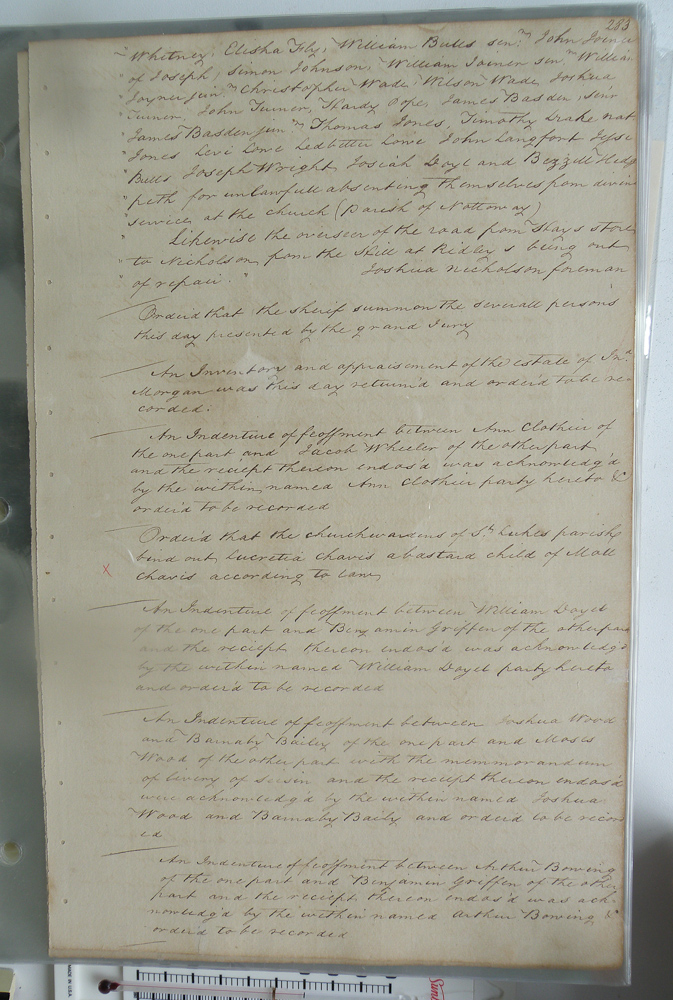 283
" Whitney, Elisha Fly, William Bulls senr. John Joiner
" of Joseph, simon Johnson, William Joiner senr William
" Joyner Junr. Christopher Wade, Wilson Wade, Joshua
" Turner, John Turner, Hardy Pope, James Basden, senr
" James Basden junr. Thomas Jones, Timothy Drake nat
" Jones Levi Lowe Ledbetter Lowe John Langfort Jesse
" Bulls Joseph Wright, Josiah Doyl and Bezzill Hedg
" peth for unlawfull absenting themselves from divin
" service at the church (parish of Nottoway)
" Likewise the overseer of the road from Hays store
" to Nicholson from the Still at Ridley s being out
" of repair. " Joshua Nicholson foreman
Orderd that the sherif summon the severall persons
this day presented by the grand Jury
An Inventory and appraisement of the estate of Jno.
Morgan was this day return'd and order'd to be re
corded.
An Indenture of feoffment between Ann Clothier of
the one part and Jacob Wheeler of the other part
and the reciept thereon endos'd was acknowledg'd
by the within named Ann Clothier party hereto &
order'd to be recorded
Order'd that the churchwardens of St. Lukes parish
bind out Lucretia Chavis a bastard child of Moll
X
Chavis according to law
An Indenture of feoffment between William Doyel
of the one part and Benjamin Griffen of the other part
and the reciept thereon endos'd was acknowledg'd
by the within named William Doyel party hereto
and order'd to be recorded
An Indenture of feoffment between Joshua Wood
and Barnaby Bailey of the one part and Moses
Wood of the other part with the memmorandum
of livery of seisin and the reciept thereon endos'd
were acknowledg'd by the within named Joshua
Wood and Barnaby Baily and orderd to be record
ed
An Indenture of feoffment between Arthur Bowing
of the one part and Benjamin Griffen of the other
part and the reciept thereon endos'd was ack
nowledg'd by the within named Arthur Bowing &
order'd to be recorded
MADE IN U.S.A.